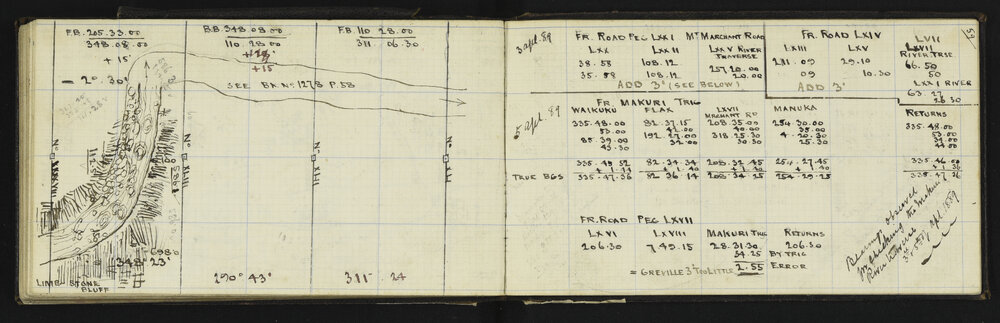 F.B. 205.33.00
348.08.00
+ 15"
- 2°. 30'
B.B. 348.08.00
110 28.00
+ 15
F.B. 110 28.00
311. 06.30
SEE BK. No. 127B P.53
No XLIII
No XLII
348° 23'
290° 43'
311. 24
LIME STONE
BLUFF
59
3 apl. 89
FR. ROAD PEG LXXI MT MARCHANT ROAD
LXX LXXII LXXV RIVER
TRAVERSE
38.58 108.12 257 20.00
35.58 108.12 20.00
ADD 3' (SEE BELOW)
FR. ROAD LXIV
LXIII LXV
281.09 29.10
09 10.30
ADD 3'
LVII
LXVII
RIVER TRIG
66.50
50
LXXI RIVER
63.27
26.30
5 apl. 89
FR. MAKURI TRIG
WAIKUKU FLAX LXVII MANUKA
MRCHANT RD
RETURNS
335.48.00 82.37.15 208.35.00 254.30.00 335.48.00
53.00 42.00 40.00 35.00 53.00
85.39.00 192.27.00 318.25.30 4.20.30 34.00
43.30 32.00 30.30 25.30 44.00
335.45.52 82.34.34 208.32.45 254.27.45 335.46.00
+ 1.40 + 1.40 + 1.40 + 1.36
TRUE BGS 335.47.36 82.36.14 208.34.25 254.29.25 335.47.36
FR. ROAD PEG LXVII
LXVI LXVIII MAKURI TRIG RETURNS
206.30 7.49.15 28.31.30 206.30
34.25 BY TRIG
= GREVILLE 3' TOO LITTLE 2.55 ERROR
Bearings observed
in checking the Makuri
River traverse
3rd & 5th apl. 1889